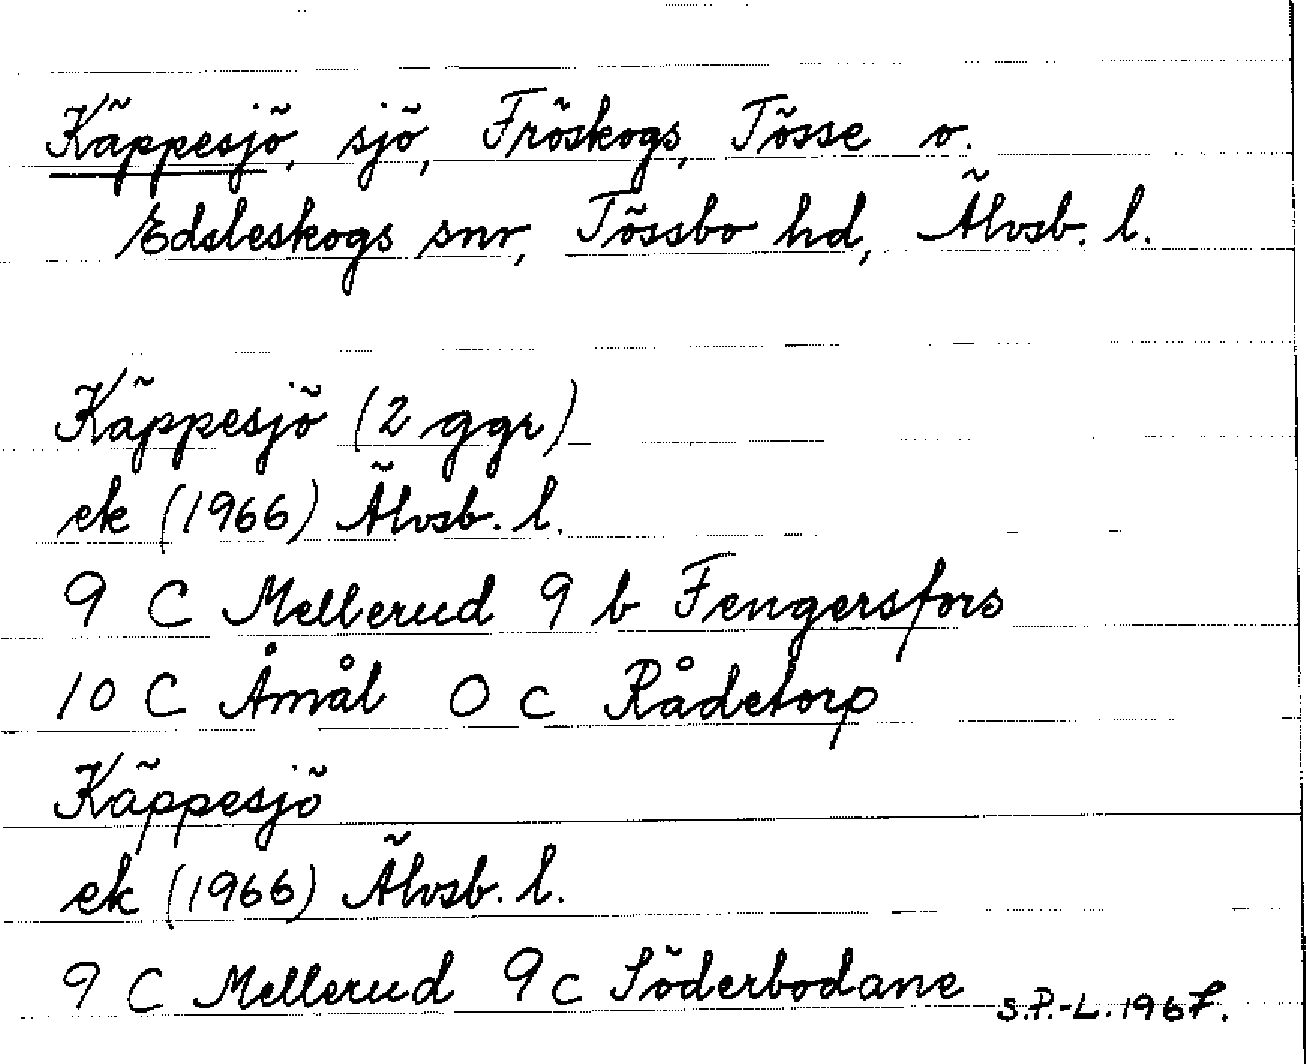 Käppesjö, sjö, Fröskogs, Tösse o.
Edsleskogs snr, Tössbo hd, Älvsb. l.
Käppesjö (2 ggr)
ek (1966) Älvsb. l.
9 C Mellerud 9 b Fengersfors
10 C Åmål 0 c Rådetorp
Käppesjö
ek (1966) Älvsb. l.
9 C Mellerud 9c Söderbodane
S.P.-L. 1967.